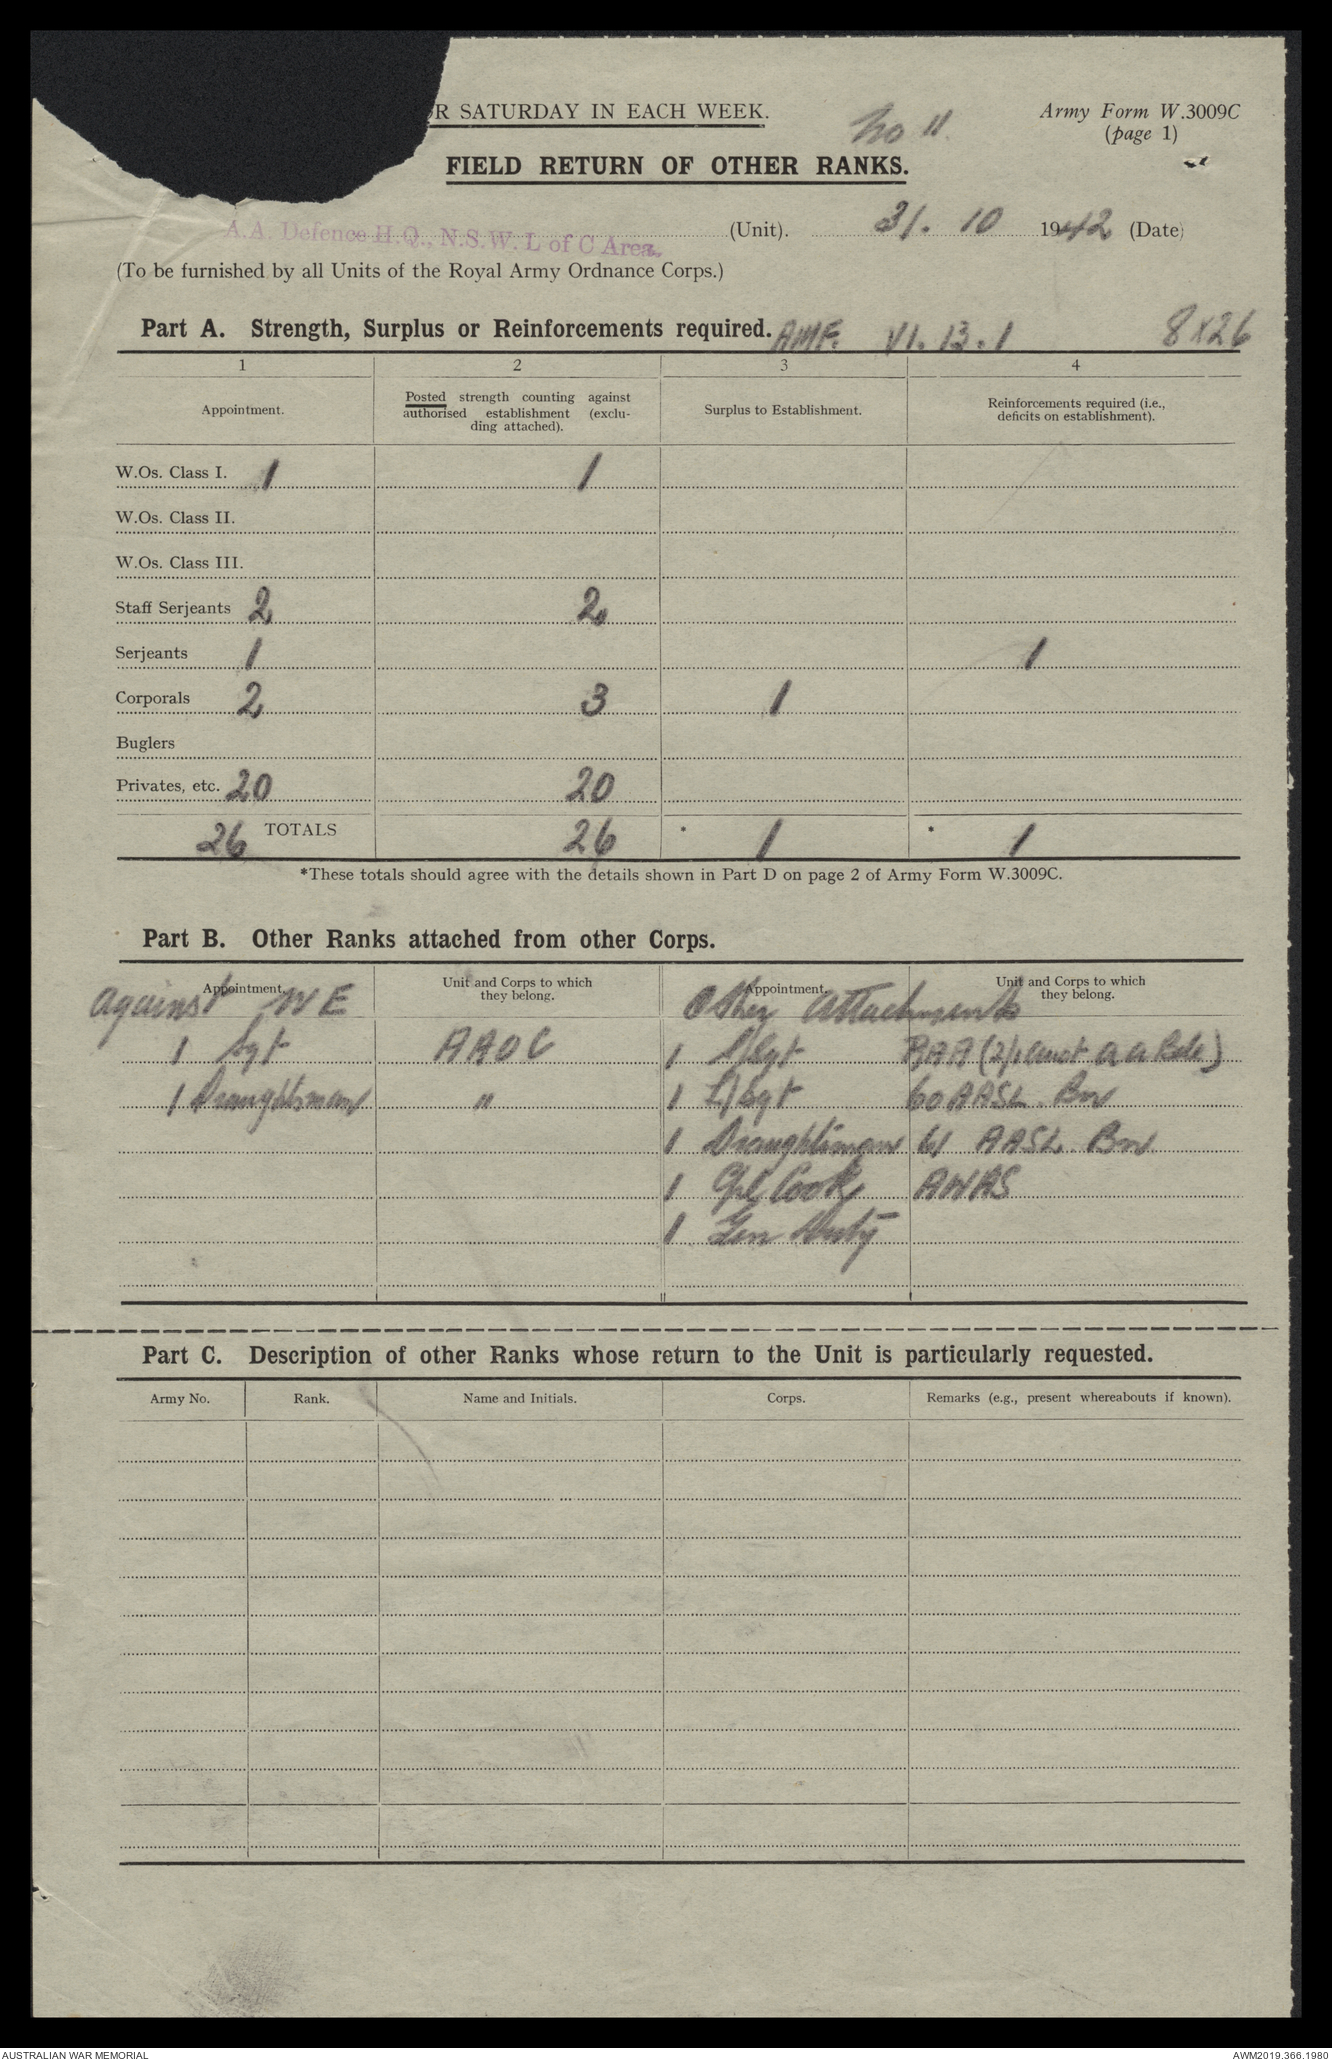 R SATURDAY IN EACH WEEK.
No 11.
Army Form W.3009C
(page 1)
FIELD RETURN OF OTHER RANKS.
A.A. Defence H.Q., N.S.W. L of C Area. (Unit). 31. 10 1942 (Date)
(To be furnished by all Units of the Royal Army Ordnance Corps.)
Part A. Strength, Surplus or Reinforcements required. AMF. VI. 13. 1 8 x 26
1 2 3 4
Appointment. Posted strength counting against authorised establishment (excluding attached). Surplus to Establishment. Reinforcements required (i.e., deficits on establishment).
W.Os. Class I. 1 1
W.Os. Class II.
W.Os. Class III.
Staff Serjeants 2 2
Serjeants 1 1
Corporals 2 3 1
Buglers
Privates, etc. 20 20
26 TOTALS 26 * 1 * 1
*These totals should agree with the details shown in Part D on page 2 of Army Form W.3009C.
Part B. Other Ranks attached from other Corps.
Appointment. Unit and Corps to which they belong. Appointment. Unit and Corps to which they belong.
against WE Other Attachments
1 Sgt AAOC 1 S/Sgt RAA (2) Aust a a Bde)
1 Draughtsman " 1 L/Sgt 60 AASL. Bn
1 Draughtsman 61 AASL. Bn.
1 Cpl Cook AWAS
1 Gen Duty
Part C. Description of other Ranks whose return to the Unit is particularly requested.
Army No. Rank. Name and Initials. Corps. Remarks (e.g., present whereabouts if known).
AUSTRALIAN WAR MEMORIAL AWM2019.366.1980